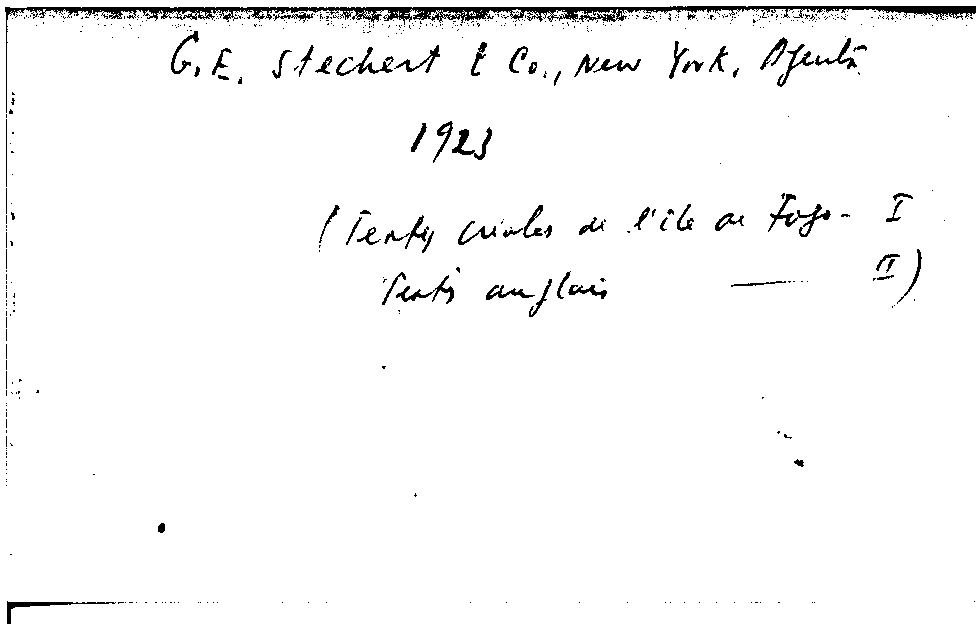 G. E. Stechert & Co., New York, Agents
1923
(Textes créoles de l'île de Fogo - I
Textes anglais —— II)